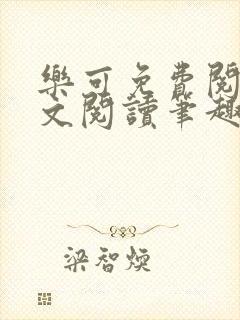 樂可免費閱
文閱讀筆趣
梁智煥